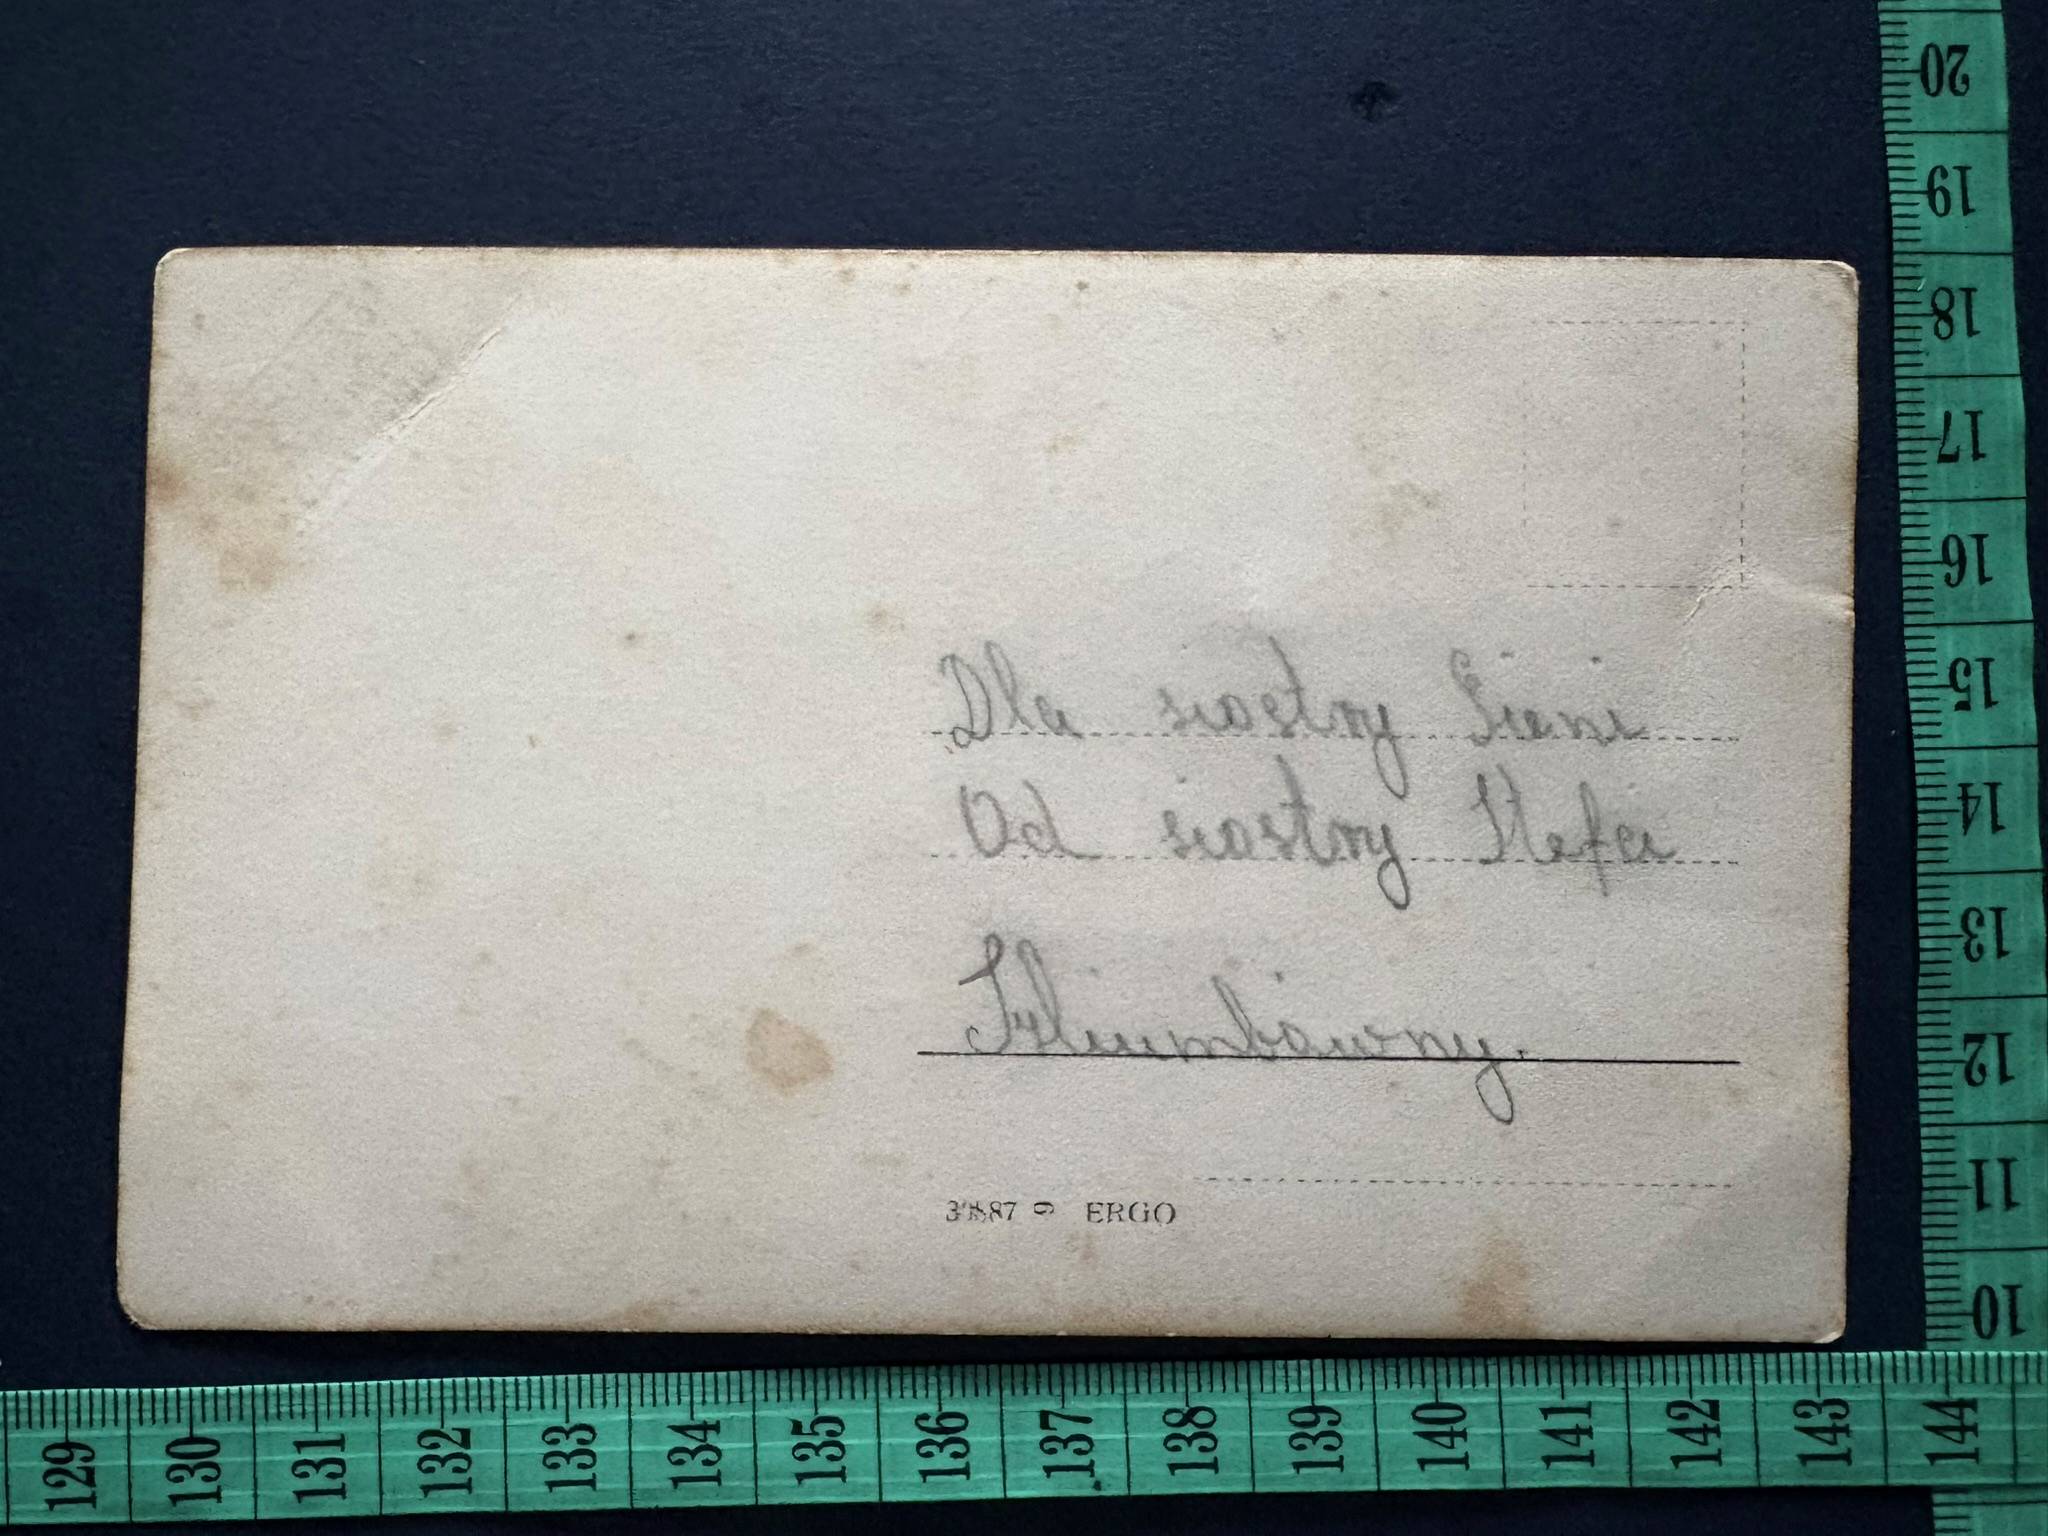 Dla siostry Gieni
Od siostry Stefci
ERGO
20
19
18
17
16
15
14
13
12
11
10
129 130 131 132 133 134 135 136 137 138 139 140 141 142 143 144